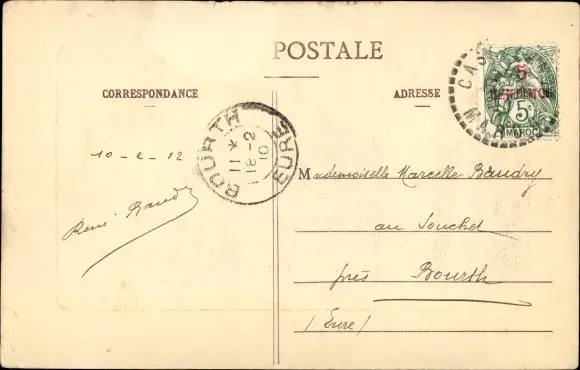 POSTALE
CORRESPONDANCE
ADRESSE
5
CENTIMOS
5c
MAROC
CAS
MAR
BOURTH
11 *
18-2
10
EURE
10-2-12
René Baudry
Mademoiselle Marcelle Baudry
au Souchet
près Bourth
(Eure)